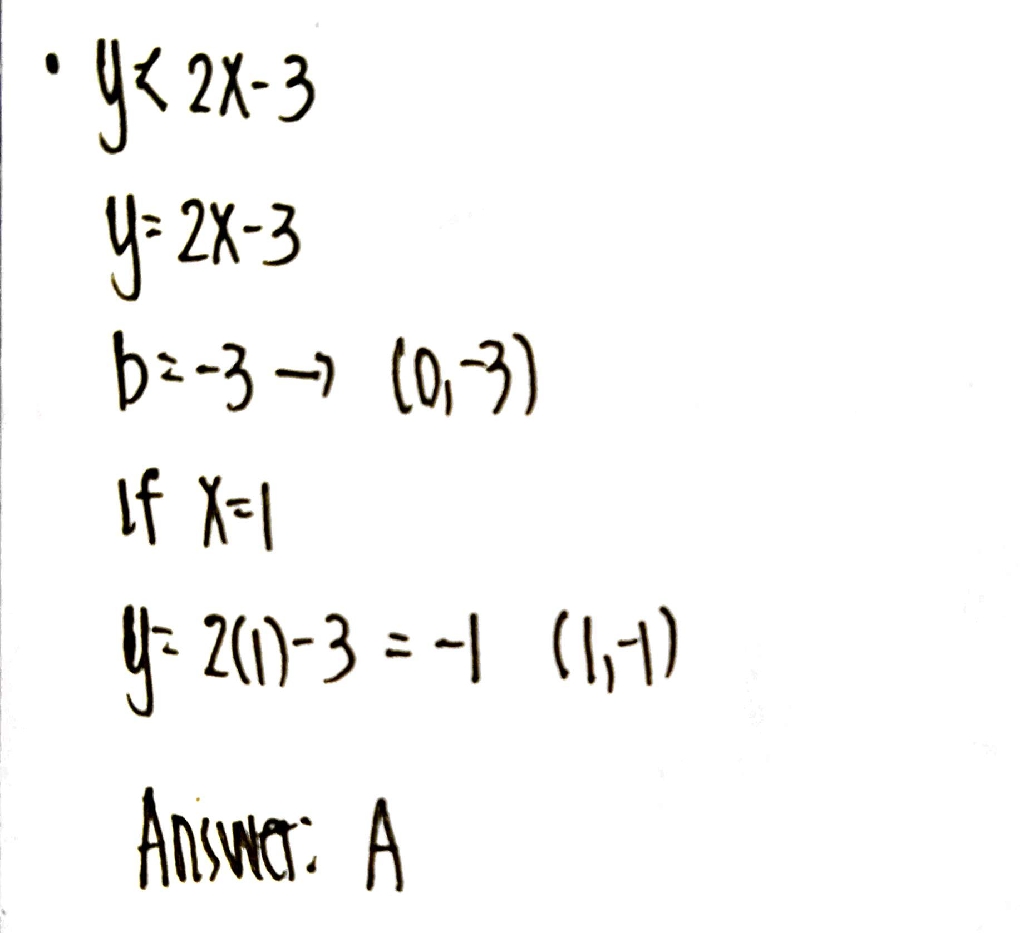 • y < 2x-3
y = 2x-3
b = -3 → (0,-3)
If x=1
y = 2(1)-3 = -1 (1,-1)
Answer: A